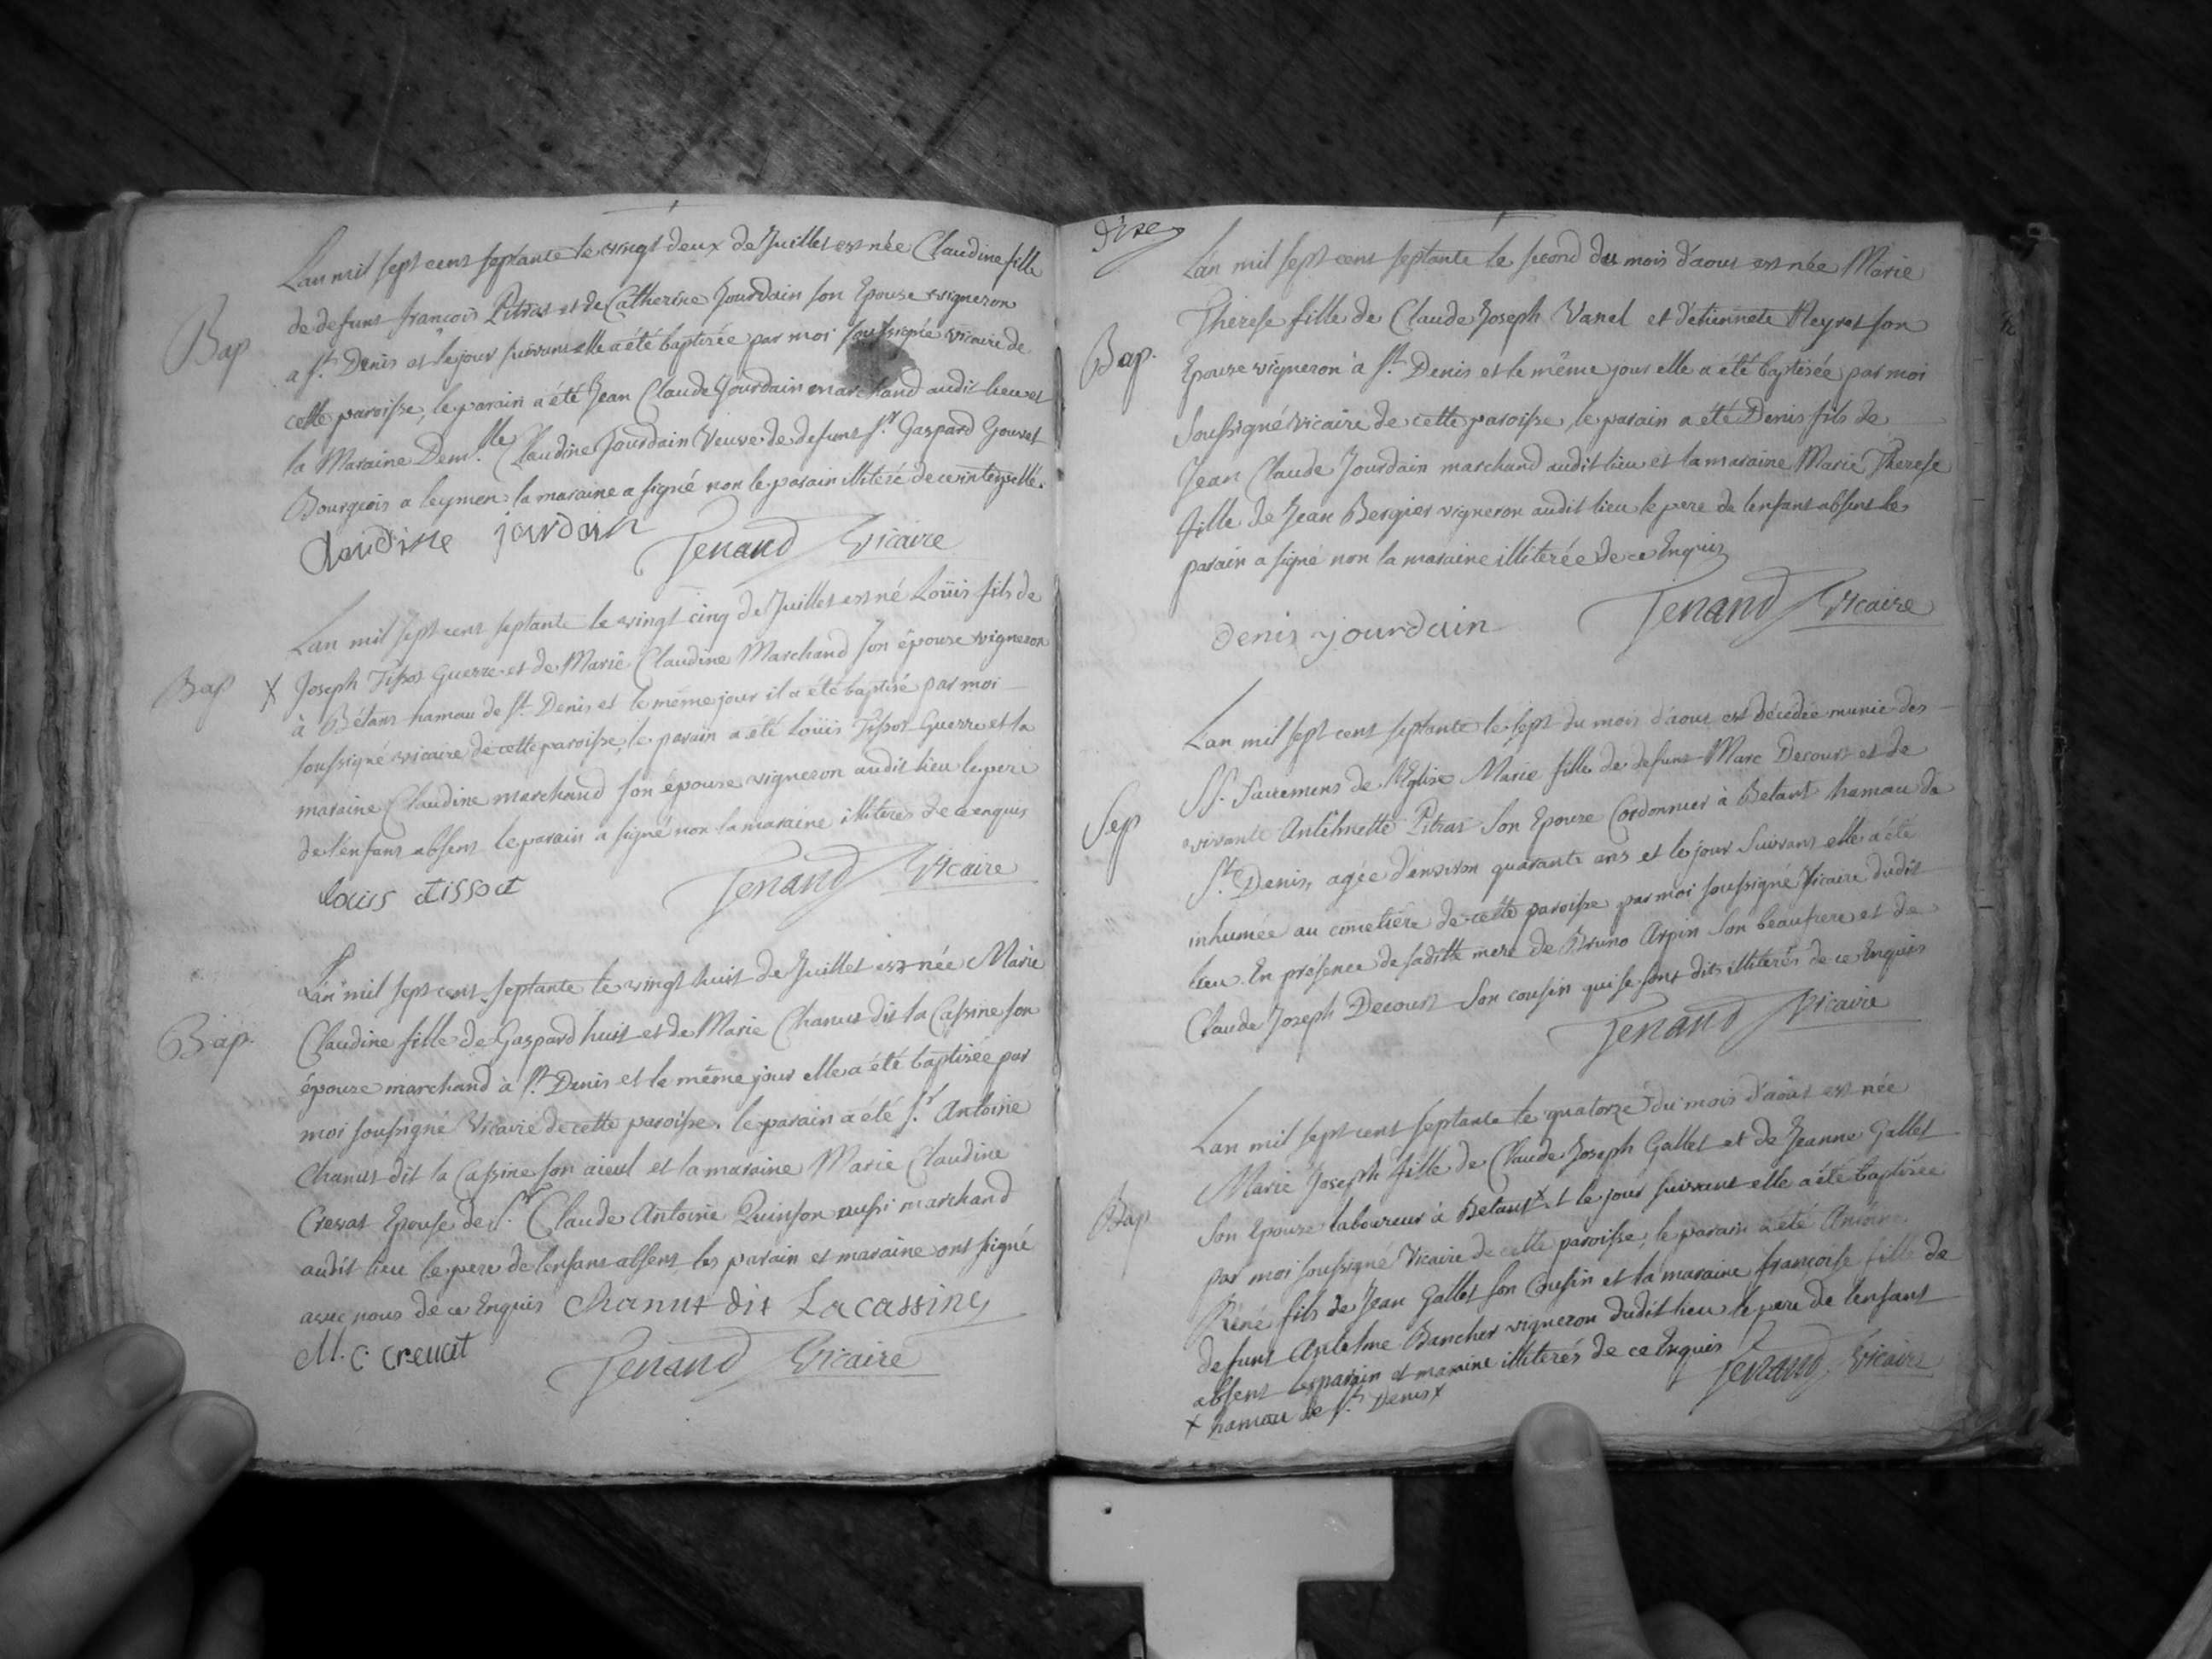 Lan mil sept cent septante le vingt deux de Juillet est née Claudine fille
de defunt françois Pitras et de Catherine Jourdain son Epouse vigneron
Bap
a St. Denis et le jour suivant elle a été baptisée par moi soussigné vicaire de
cette paroisse, le parain a été Jean Claude Jourdain marchand audit lieu et
la Maraine Dem.lle Claudine Jourdain Veuve de defunt Sr. Gaspard Gouvet
Bourgeois a leymen la maraine a signé non le parain illiteré de ce interpellé.
claudine jourdain
Tenand Vicaire
Lan mil sept cent septante le vingt cinq de Juillet est né Loüis fils de
Bap X Joseph Tissot Guerre et de Marie Claudine Marchand son épouse vigneron
à Bétans hamau de St. Denis et le même jour il a été baptisé par moi
soussigné vicaire de cette paroisse, le parain a été Loüis Tissot Guerre et la
maraine Claudine marchand son épouse vigneron audit lieu le pere
de l'enfant absent le parain a signé non la maraine illiterés de ce enquis
louis tissot
Tenand Vicaire
Lan mil sept cent septante le vingt huit de Juillet est née Marie
Bap. Claudine fille de Gaspard huit et de Marie Chanut dit la Cassine son
épouse marchand à St. Denis et le même jour elle a été baptisée par
moi soussigné Vicaire de cette paroisse. le parain a été Sr. Antoine
Chanut dit la Cassine son aieul et la maraine Marie Claudine
Crevat Epouse de Sr. Claude Antoine Quinson aussi marchand
audit lieu le pere de lenfant absent les parain et maraine ont signé
avec nous de ce Enquis Chanut dit Lacassine
M. c crevat
Tenand Vicaire
Lan mil sept cent septante le second du mois d'aout est née Marie
Therese fille de Claude Joseph Vanel et d'etiennete Neyret son
Bap. Epouse vigneron à St. Denis et le même jour elle a été baptisée par moi
Soussigné vicaire de cette paroisse, le parain a été Denis fils de
Jean Claude Jourdain marchand audit lieu et la maraine Marie Therese
fille de Jean Bergier vigneron audit lieu le pere de lenfant absent le
parain a signé non la maraine illiterée de ce Enquis
denis jourdain
Tenand Vicaire
Lan mil sept cent septante le sept du mois d'aout est décédée munie des
SS. Sacremens de l'Eglise Marie fille de defunt Marc Decourt et de
Sep
vivante Antelmette Pitras Son Epouse Cordonnier à Betant hamau de
St. Denis, agée d'environ quarante ans et le jour Suivant elle a été
inhumée au cimetiére de cette paroisse par moi soussigné Vicaire dudit
lieu En présence de sadite mere de Bruno Arpin Son beaufrere et de
Claude Joseph Decourt Son cousin qui se sont dits illiterés de ce Enquis
Tenand Vicaire
Lan mil sept cent septante le quatorze du mois d'aout est née
Marie Joseph fille de Claude Joseph Gallet et de Jeanne Gallet
Bap
Son Epouse laboureur à Betant X et le jour suivant elle a été baptisée
par moi soussigné Vicaire de cette paroisse, le parain a été Antoine
Réné fils de Jean Gallet son Cousin et la maraine françoise fille de
defunt Antelme Bancher vigneron dudit lieu le pere de lenfant
absent les parain et maraine illiterés de ce Enquis
Tenand Vicaire
X hamau de St. Denis X